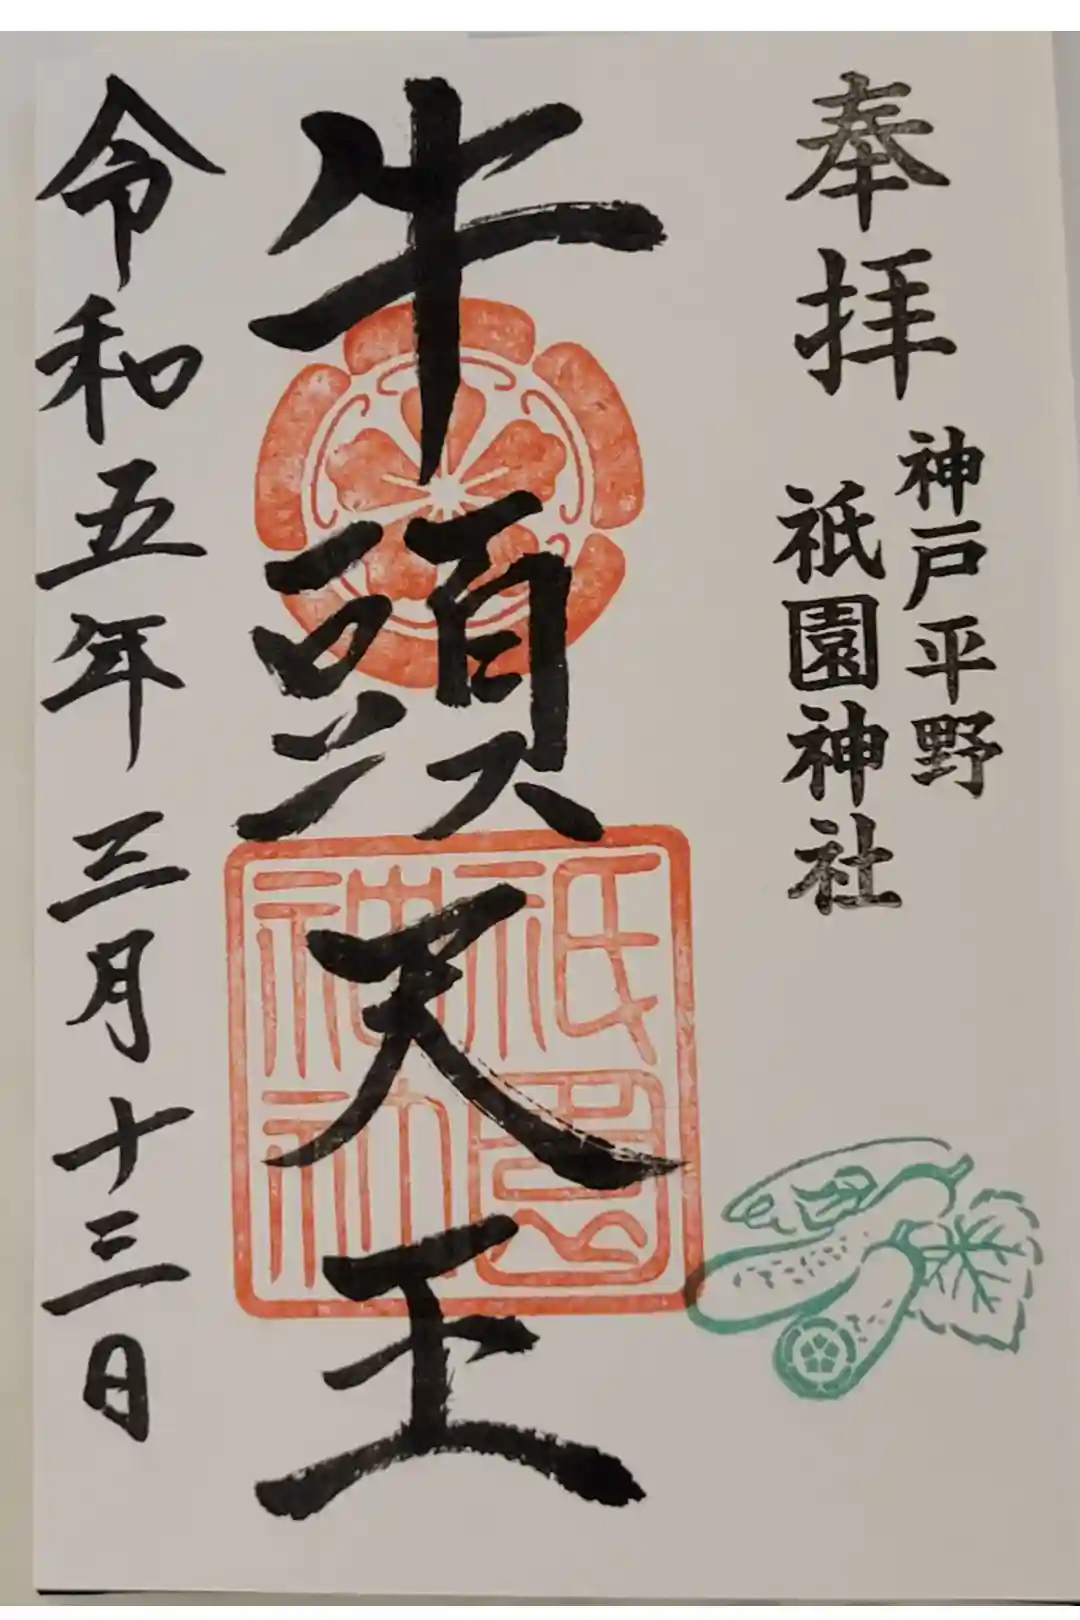 奉拝
神戸平野
祇園神社
牛頭天王
祇園神社
令和五年三月十三日